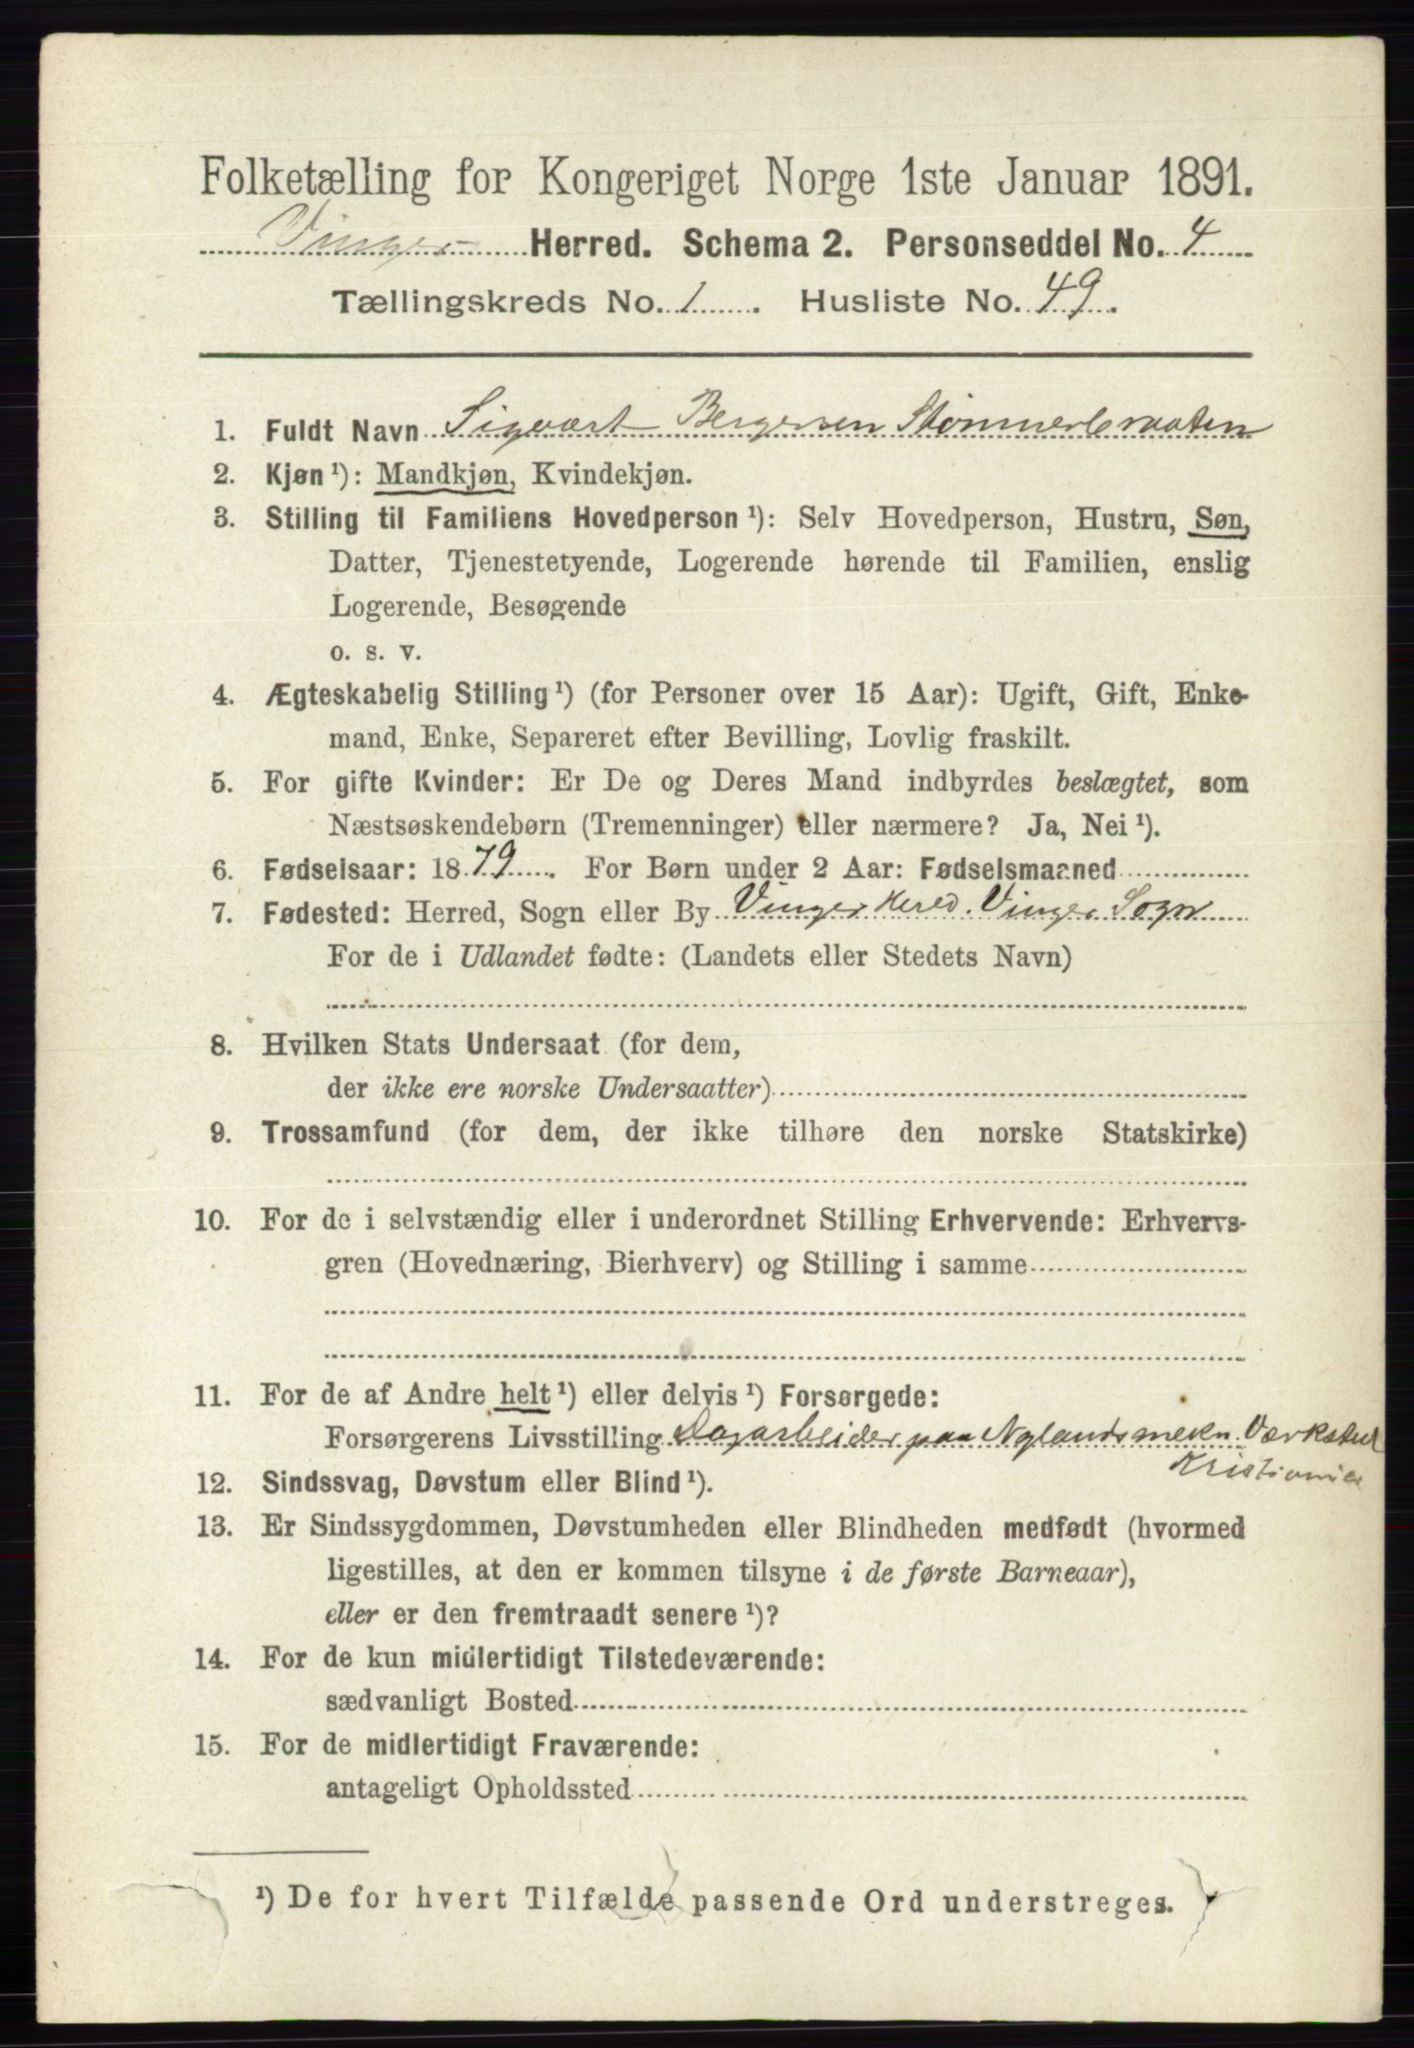 Folketælling for Kongeriget Norge 1ste Januar 1891.
Vinger Herred. Schema 2. Personseddel No. 4
Tællingskreds No. 1. Husliste No. 49.
1. Fuldt Navn Sigvart Bergersen Stømnerbraaten
2. Kjøn ¹): Mandkjøn, Kvindekjøn.
3. Stilling til Familiens Hovedperson ¹): Selv Hovedperson, Hustru, Søn,
Datter, Tjenestetyende, Logerende hørende til Familien, enslig
Logerende, Besøgende
o. s. v.
4. Ægteskabelig Stilling ¹) (for Personer over 15 Aar): Ugift, Gift, Enke-
mand, Enke, Separeret efter Bevilling, Lovlig fraskilt.
5. For gifte Kvinder: Er De og Deres Mand indbyrdes beslægtet, som
Næstsøskendebørn (Tremenninger) eller nærmere? Ja, Nei ¹).
6. Fødselsaar: 1879. For Børn under 2 Aar: Fødselsmaaned
7. Fødested: Herred, Sogn eller By Vinger Hered. Vinger Sogn
For de i Udlandet fødte: (Landets eller Stedets Navn)
8. Hvilken Stats Undersaat (for dem,
der ikke ere norske Undersaatter)
9. Trossamfund (for dem, der ikke tilhøre den norske Statskirke)
10. For de i selvstændig eller i underordnet Stilling Erhvervende: Erhvervs-
gren (Hovednæring, Bierhverv) og Stilling i samme
11. For de af Andre helt ¹) eller delvis ¹) Forsørgede:
Forsørgerens Livsstilling Dagarbeider paa Nylands mekn. Værksted
Kristiania
12. Sindssvag, Døvstum eller Blind ¹).
13. Er Sindssygdommen, Døvstumheden eller Blindheden medfødt (hvormed
ligestilles, at den er kommen tilsyne i de første Barneaar),
eller er den fremtraadt senere ¹)?
14. For de kun midlertidigt Tilstedeværende:
sædvanligt Bosted
15. For de midlertidigt Fraværende:
antageligt Opholdssted
¹) De for hvert Tilfælde passende Ord understreges.